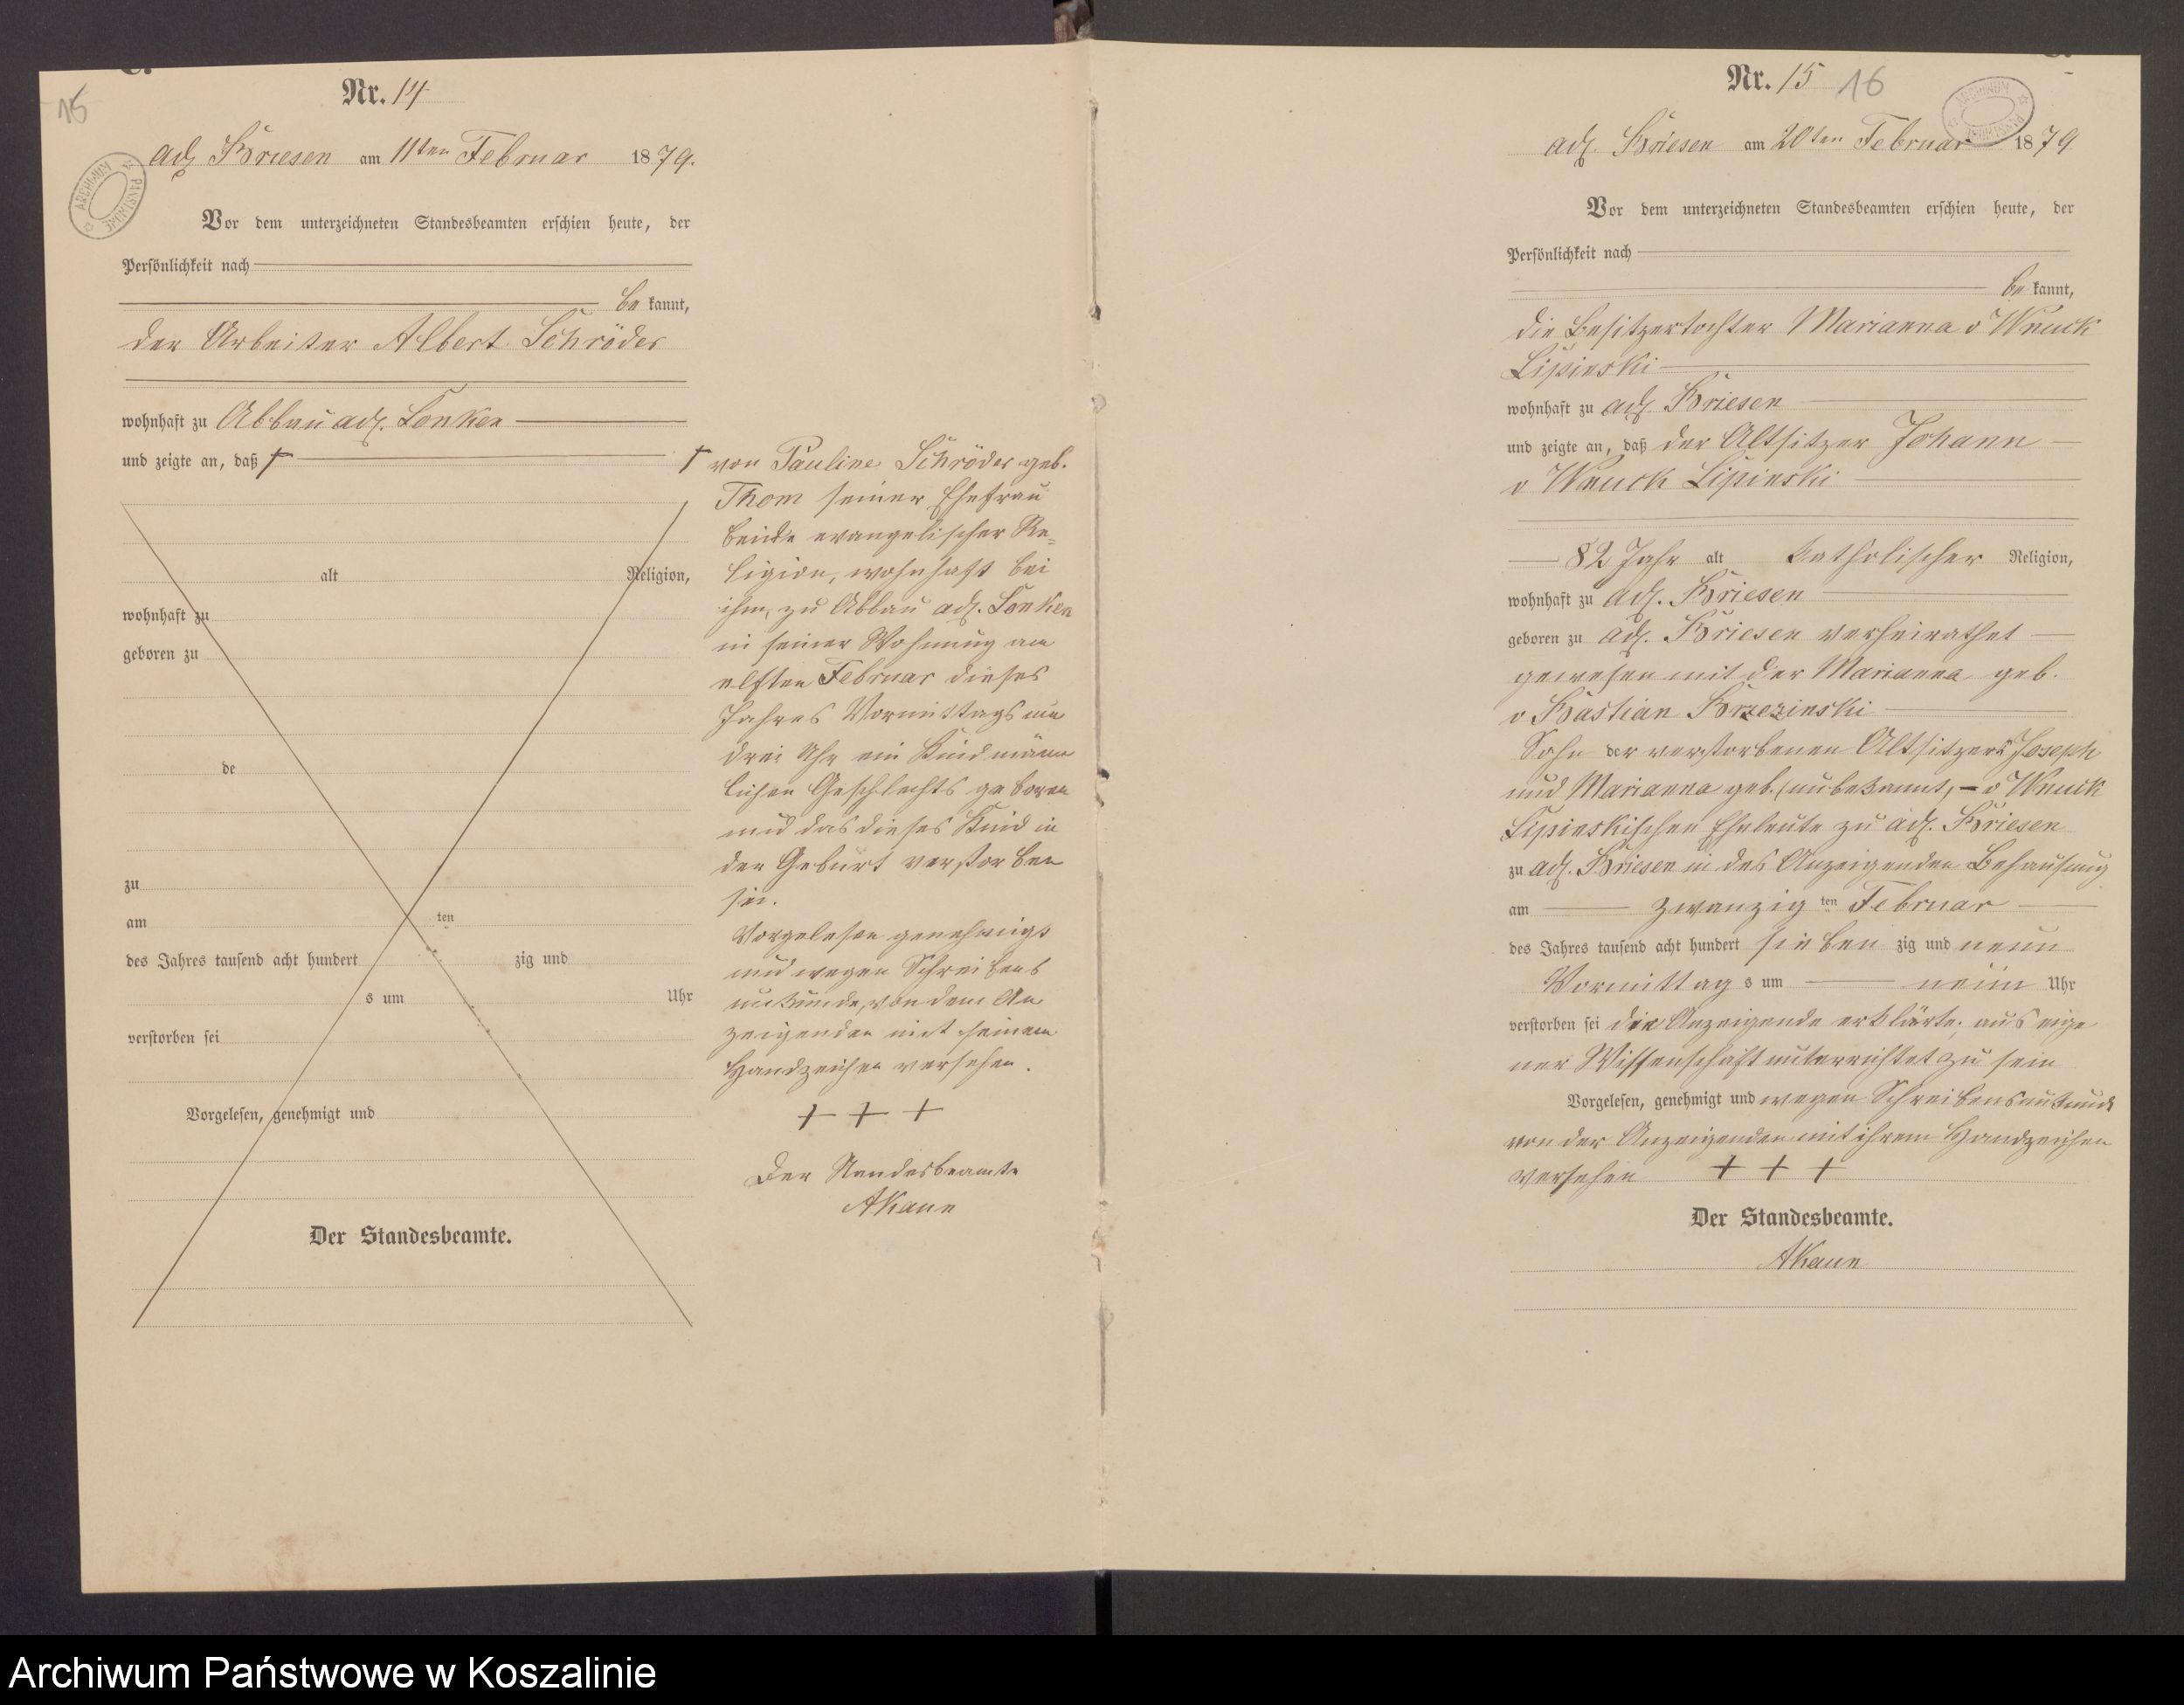 15
Nr. 14
adl. Briesen am 11ten Februar 1879.
Vor dem unterzeichneten Standesbeamten erschien heute, der
Persönlichkeit nach
be kannt,
der Arbeiter Albert Schröder
wohnhaft zu Abbau adl. Lonken
und zeigte an, daß †
alt Religion,
wohnhaft zu
geboren zu
de
zu
am ten
des Jahres tausend acht hundert zig und
s um Uhr
verstorben sei
Vorgelesen, genehmigt und
Der Standesbeamte.
† von Pauline Schröder geb.
Thom seiner Ehefrau
beide evangelischer Re=
ligion, wohnhaft bei
ihm, zu Abbau adl. Lonken
in seiner Wohnung am
elften Februar dieses
Jahres Vormittags um
drei Uhr ein Kind männ
lichen Geschlechts geboren
und das dieses Kind in
der Geburt verstorben
sei.
Vorgelesen genehmigt
und wegen Schreibens
unkunde, von dem An
zeigenden mit seinem
Handzeichen versehen.
+ + +
Der Standesbeamte
AKaun
Nr. 15 16
adl. Briesen am 20ten Februar 1879
Vor dem unterzeichneten Standesbeamten erschien heute, der
Persönlichkeit nach
be kannt,
die Besitzertochter Marianna v Wnuck
Lipinski
wohnhaft zu adl. Briesen
und zeigte an, daß der Altsitzer Johann
v Wnuck Lipinski
82 Jahr alt katholischer Religion,
wohnhaft zu adl. Briesen
geboren zu adl. Briesen verheirathet
gewesen mit der Marianna geb.
v Bastian Brzezinski
Sohn der verstorbenen Altsitzers Joseph
und Marianna geb. (unbekannt) – v Wnuck
Lipinskischen Eheleute zu adl. Briesen
zu adl. Briesen in des Anzeigenden Behausung
am zwanzig ten Februar
des Jahres tausend acht hundert sieben zig und neun
Vormittag s um neun Uhr
verstorben sei die Anzeigende erklärte, aus eige
ner Wissenschaft unterrichtet zu sein
Vorgelesen, genehmigt und wegen Schreibensunkunde
von der Anzeigenden mit ihrem Handzeichen
versehen + + +
Der Standesbeamte.
AKaun
Archiwum Państwowe w Koszalinie